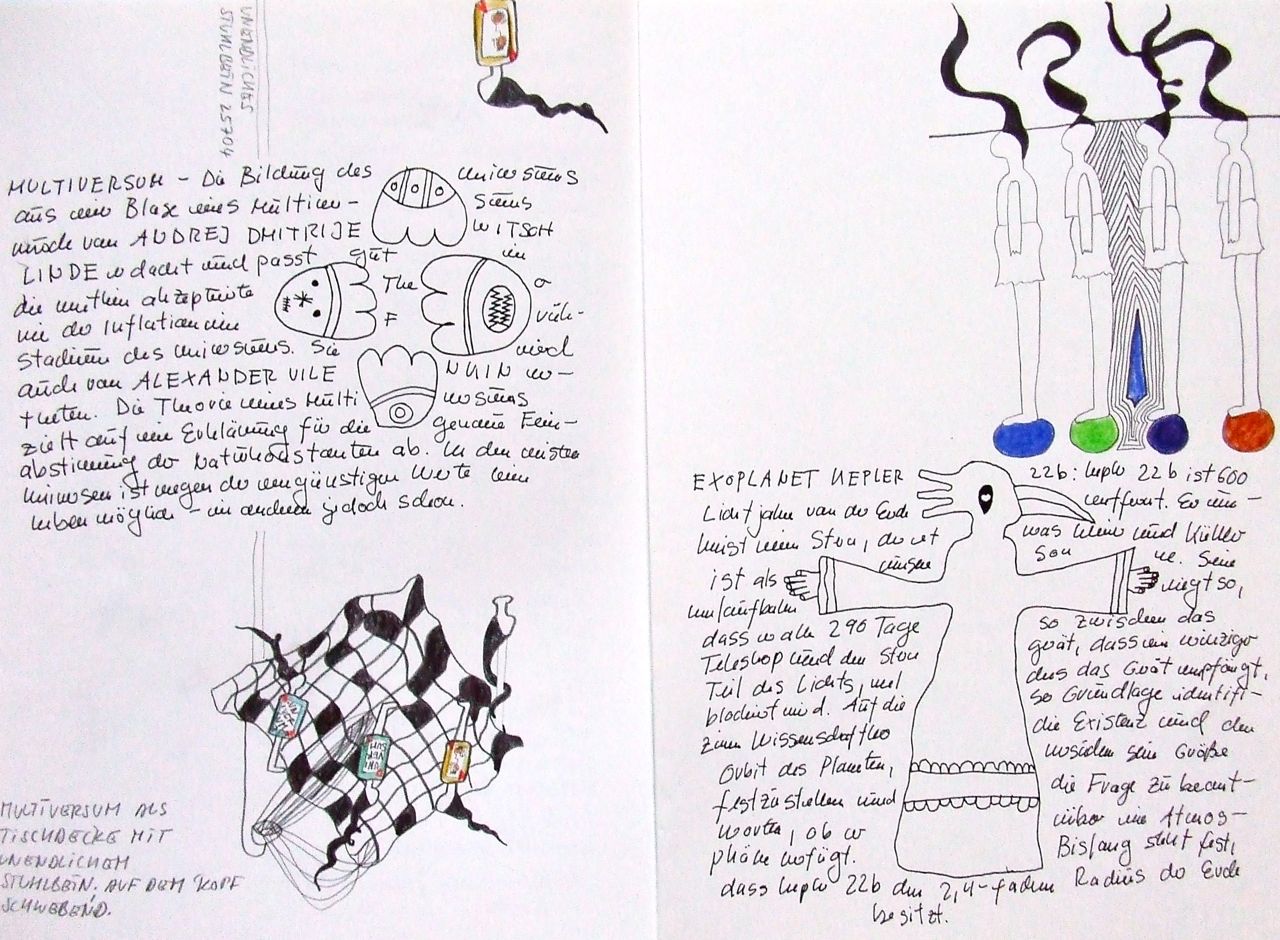 UNENDLICHES
STUHLBEIN 25704
MULTIVERSUM – Die Bildung des Universums
aus einer Blase eines Multiver- sums
wurde von ANDREJ DMITRIJE WITSCH
LINDE erdacht und passt gut in
die weithin akzeptierte Theo
rie der Inflation im Früh-
stadium des Universums. Sie wird
auch von ALEXANDER VILE NKIN ver-
treten. Die Theorie eines Multi versums
zielt auf eine Erklärung für die genaue Fein-
abstimmung der Naturkonstanten ab. In den meisten
Universen ist wegen der ungünstigen Werte kein
Leben möglich – in anderen jedoch schon.
MULTIVERSUM ALS
TISCHDECKE MIT
UNENDLICHEM
STUHLBEIN. AUF DEM KOPF
SCHWEBEND.
EXOPLANET KEPLER 22b: Kepler 22b ist 600
Lichtjahre von der Erde entfernt. Er um-
kreist einen Stern, der et was kleiner und kühler
ist als unsere Son ne. Seine
Umlaufbahn liegt so,
dass er alle 290 Tage so zwischen das
Teleskop und den Stern gerät, dass ein winziger
Teil des Lichts, welches das Gerät empfängt,
blockiert wird. Auf die so Grundlage identifi-
zieren Wissenschaftler die Existenz und den
Orbit des Planeten, um seine Größe
festzustellen und die Frage zu beant-
worten, ob er über eine Atmos-
phäre verfügt. Bislang steht fest,
dass Kepler 22b den 2,4-fachen Radius der Erde
besitzt.